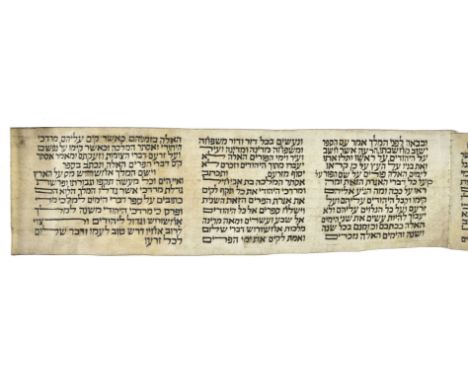 ובבאה לפני המלך אמר עם הספר
ישוב מחשבתו הרעה אשר חשב
על היהודים על ראשו ותלו אתו
ואת בניו על העץ על כן קראו
לימים האלה פורים על שם הפור על
כן על כל דברי האגרת הזאת ומה
ראו על ככה ומה הגיע אליהם
קימו וקבל היהודים עליהם ועל
זרעם ועל כל הנלוים עליהם ולא
יעבור להיות עשים את שני הימים
האלה ככתבם וכזמנם בכל שנה
ושנה והימים האלה נזכרים
ונעשים בכל דור ודור משפחה
ומשפחה מדינה ומדינה ועיר
ועיר וימי הפורים האלה לא
יעברו מתוך היהודים וזכרם לא
יסוף מזרעם ותכתב
אסתר המלכה בת אביחיל
ומרדכי היהודי את כל תקף לקים
את אגרת הפורים הזאת השנית
וישלח ספרים אל כל היהודים
אל שבע ועשרים ומאה מדינה
מלכות אחשורוש דברי שלום
ואמת לקים את ימי הפרים
האלה בזמניהם כאשר קים עליהם מרדכי
היהודי ואסתר המלכה וכאשר קימו על נפשם
ועל זרעם דברי הצומות וזעקתם ומאמר אסתר
קים דברי הפרים האלה ונכתב בספר
וישם המלך אחשורוש מס על הארץ
ואיי הים וכל מעשה תקפו וגבורתו ופרשת
גדלת מרדכי אשר גדלו המלך הלוא הם
כתובים על ספר דברי הימים למלכי מדי
ופרס כי מרדכי היהודי משנה למלך
אחשורוש וגדול ליהודים ורצוי
לרוב אחיו דרש טוב לעמו ודבר שלום
לכל זרעו